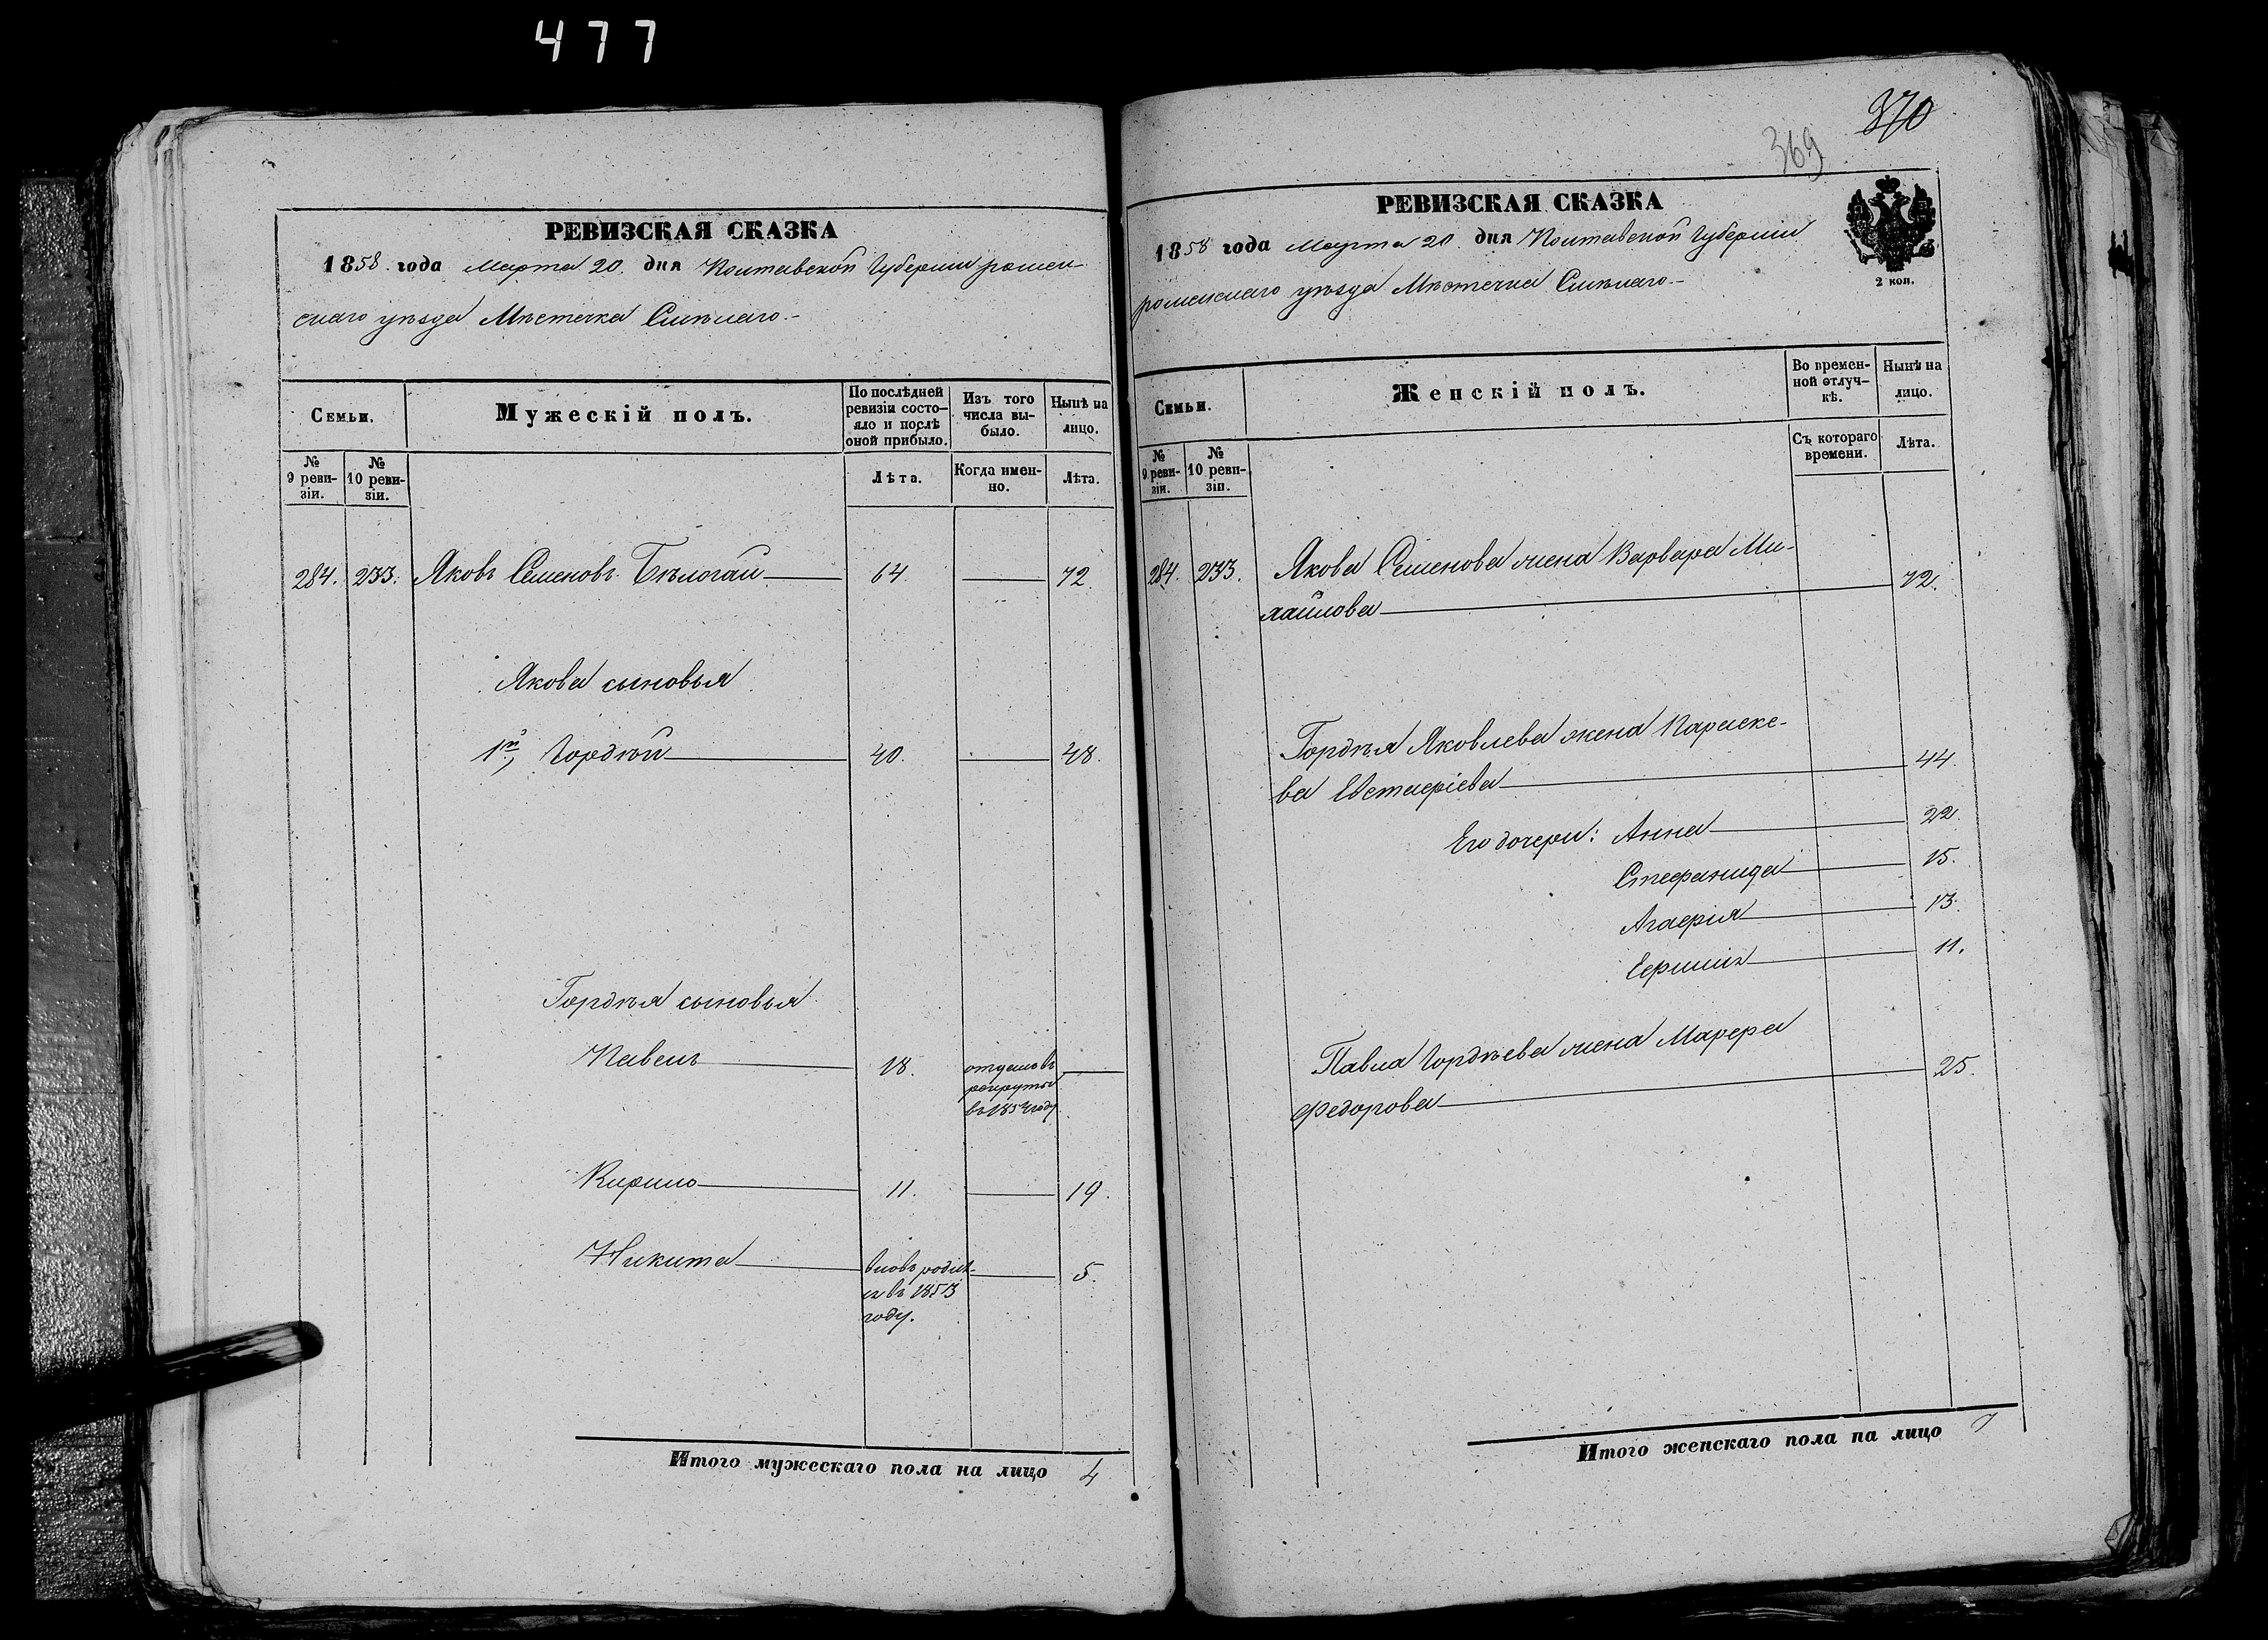 477
РЕВИЗСКАЯ СКАЗКА
1858. года Марта 20. дня Полтавской Губернии ромен
скаго уѣзда Мѣстечка Смѣлаго.-
Семьи.
Мужескій полъ.
По послѣдней
ревизіи состо-
яло и послѣ
оной прибыло.
Изъ того
числа вы-
было.
Нынѣ на
лицо.
№
9 реви-
зіи.
№
10 реви-
зіи.
Лѣта.
Когда имен-
но.
Лѣта.
284. 233. Яковъ Семеновъ Бѣлогай 64. 72
Якова сыновья
1й, Гордѣй 40. 48.
Гордѣя сыновья
Павелъ 18. отданъ въ
рекруты
въ 1854 году
Кирило 11. 19.
Никита вновь родил- 5.
ся въ 1853
году.
Итого мужескаго пола на лицо 4
370
369
РЕВИЗСКАЯ СКАЗКА
1858 года Марта 20. дня Полтавской Губернии
роменскаго уѣзда Мѣстечка Смѣлаго.-
2 коп.
Семьи.
Женскій полъ.
Во времен-
ной отлуч-
кѣ.
Нынѣ на
лицо.
№
9 реви-
зіи.
№
10 реви-
зіи.
Съ котораго
времени.
Лѣта.
284. 233. Якова Семенова жена Варвара Ми-
хайлова 72.
Гордѣя Яковлева жена Параске-
ва Евстафіева 44.
Его дочери: Анна 22.
Стефанида 15.
Агафія 13.
Ефимія 11.
Павла Гордѣева жена Марфа
Федорова 25.
Итого женскаго пола на лицо 7